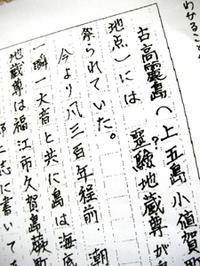 わかること
古高麗島(上五島小値賀町
?
地点)には霊験地蔵尊が
祭られていた。
今より八三百年程前、朝
一瞬一大音と共に島は海底
地蔵尊は福江市久賀島蕨町
志に書いて